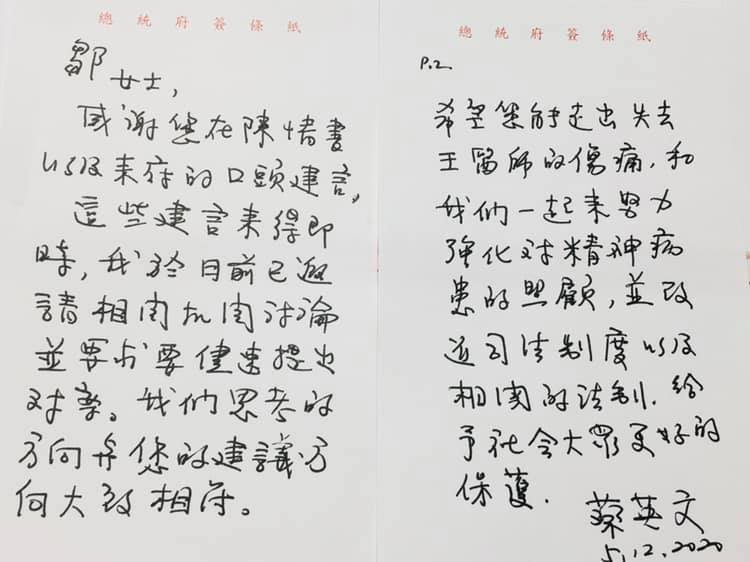 總統府簽條紙
鄒女士,
感謝您在陳情書
以及來府的口頭建言,
這些建言來得即
時,我於日前已邀
請相関机関討論
並要求要儘速提出
対案。我们思考的
方向与您的建議方
向大致相符。
總統府簽條紙
P.2
希望您能走出失去
王醫師的傷痛,和
我们一起来努力
強化対精神病
患的照顧,並改
近司法制度以及
相関的法制,給
予社会大眾更好的
保護.
蔡英文
5.12.2020